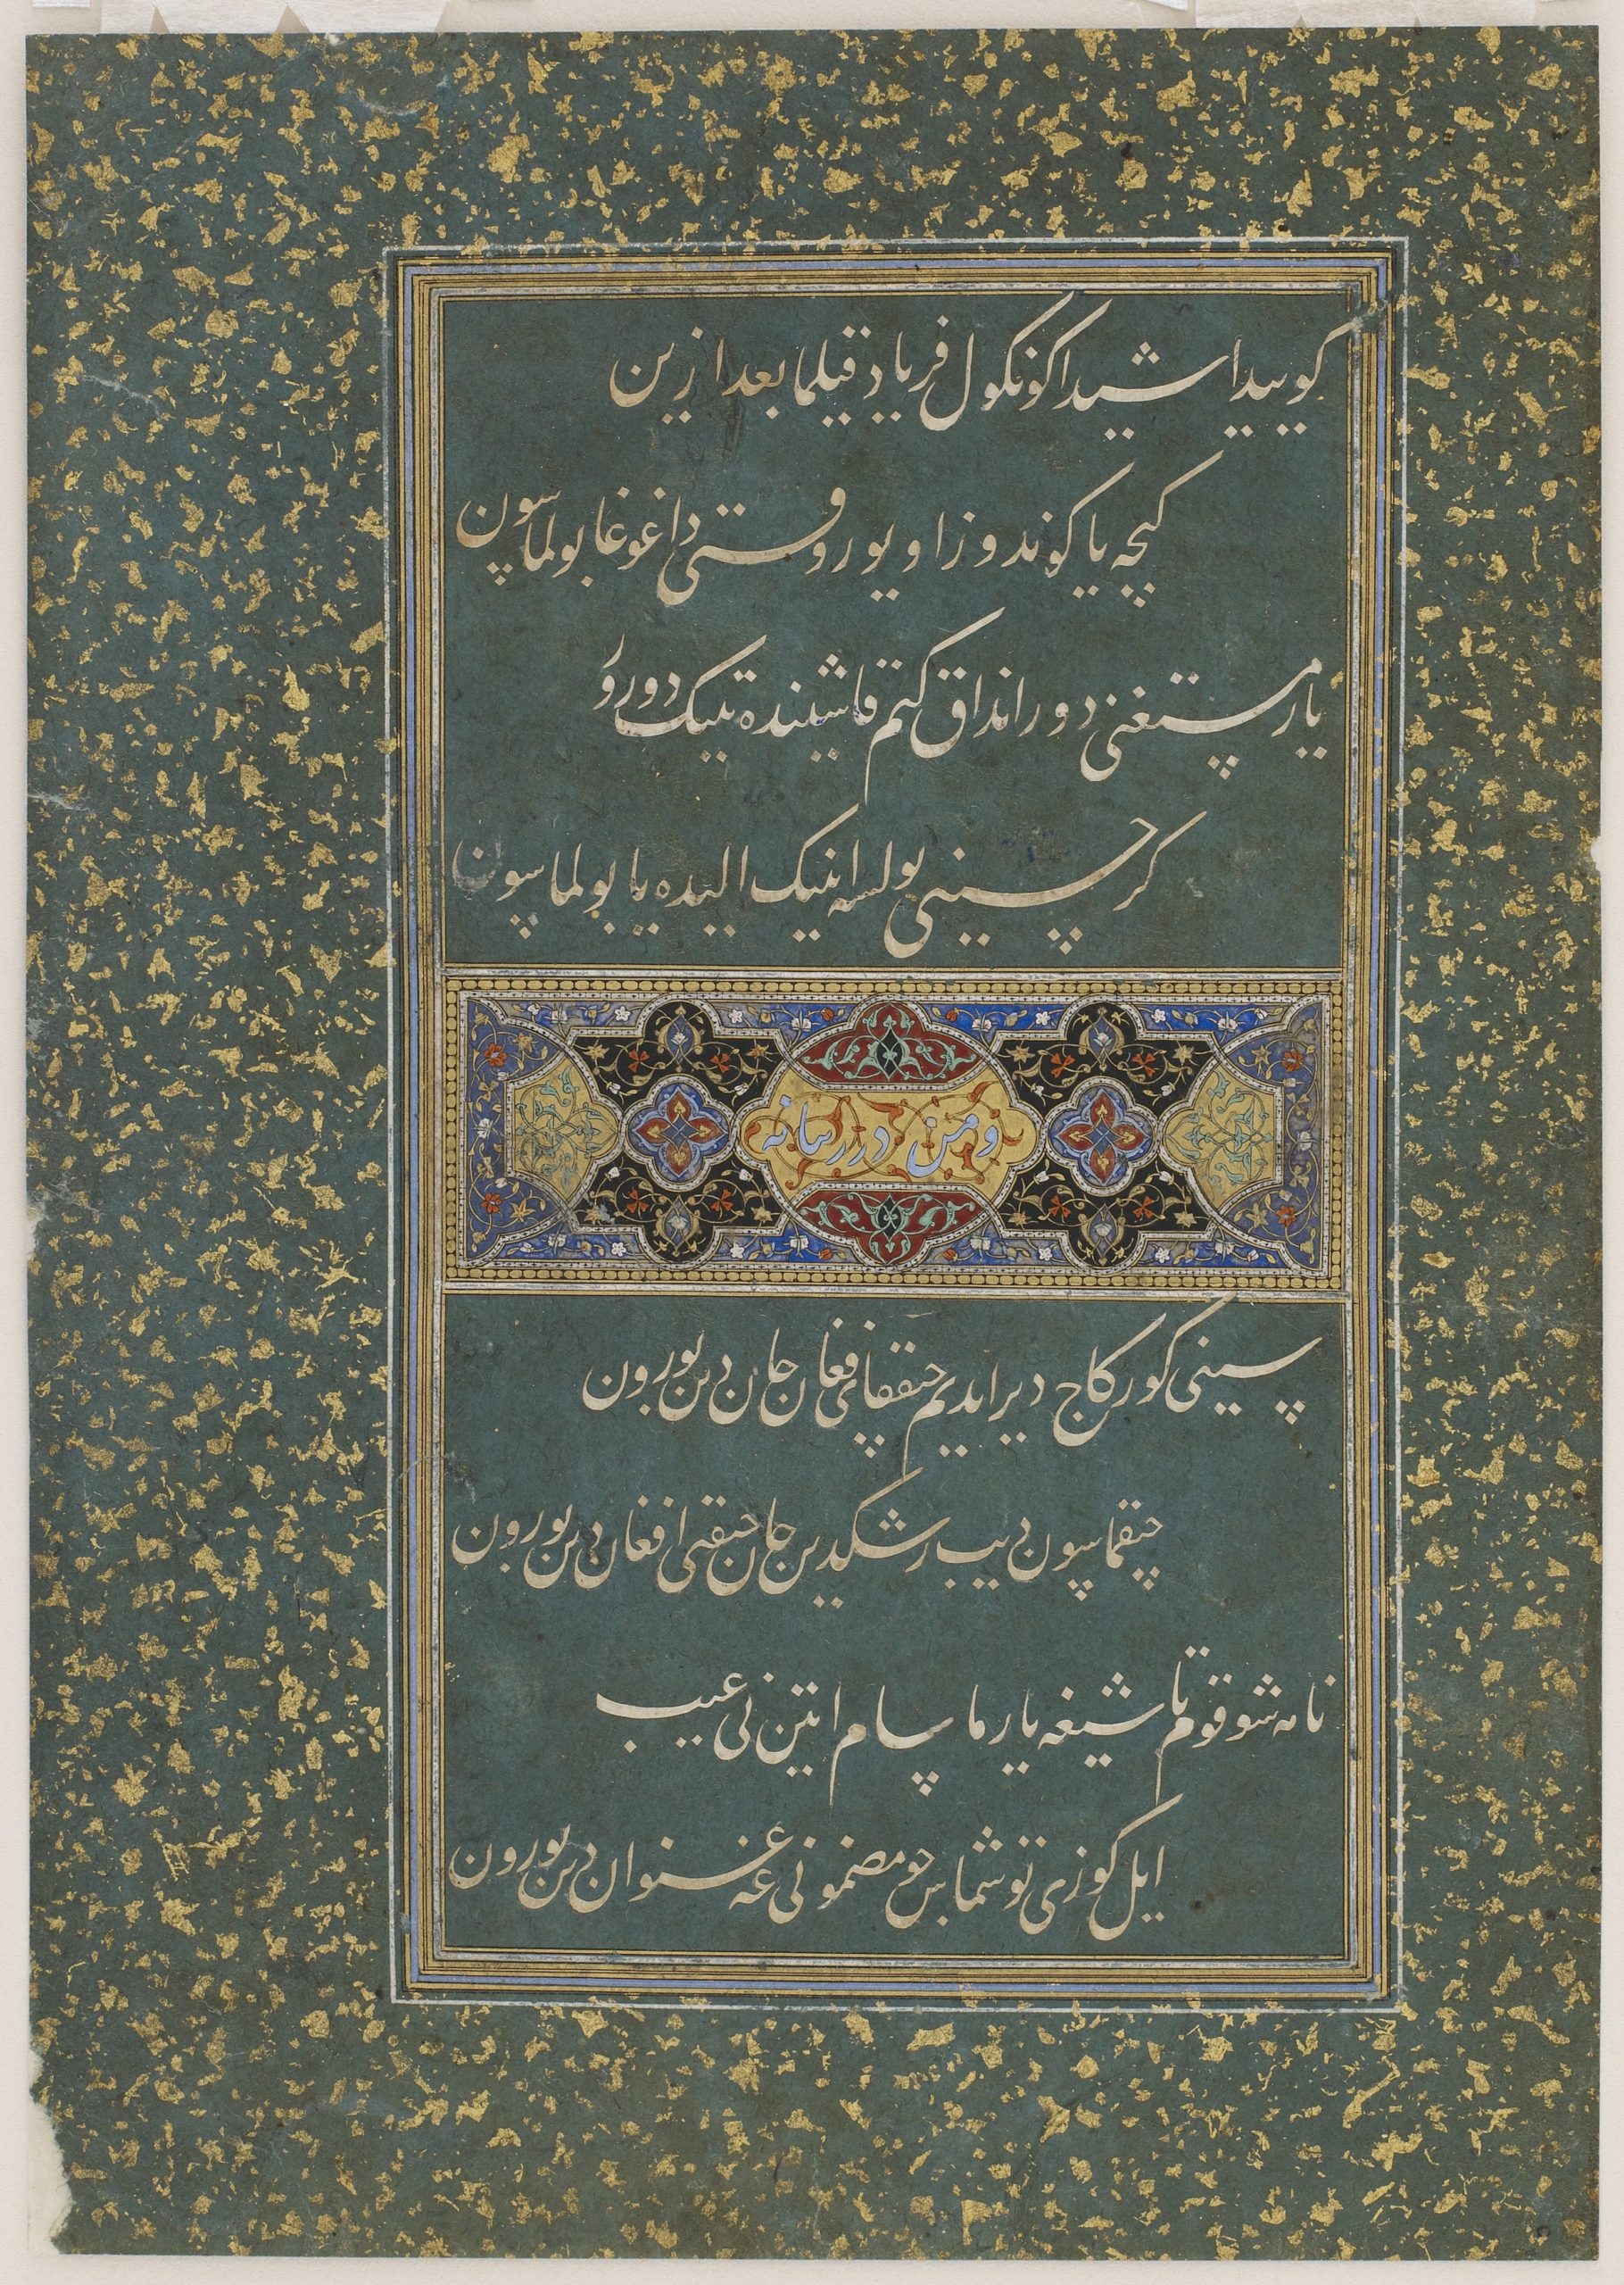 کوییدا شیدا کونکول فریاد قیلما بعد ازین
کیچه یا کوندوز اویور وقتی دا غوغا بولماسون
یار مستغنی دور انداق کیم قاشینده تینک دورور
کر حسینی بولسه اینیک الیده یا بولماسون
و من درر بیانه
سینی کورکاج دیر ایدیم چیققای فغان جان دین بورون
چیقماسون دیب رشکدین جان چیقتی افغان دین بورون
نامه شوقوم تاشیغه یارما سام ایتین نی عیب
ایل کوزی توشماس جو مضمونی غه عنوان دین بورون